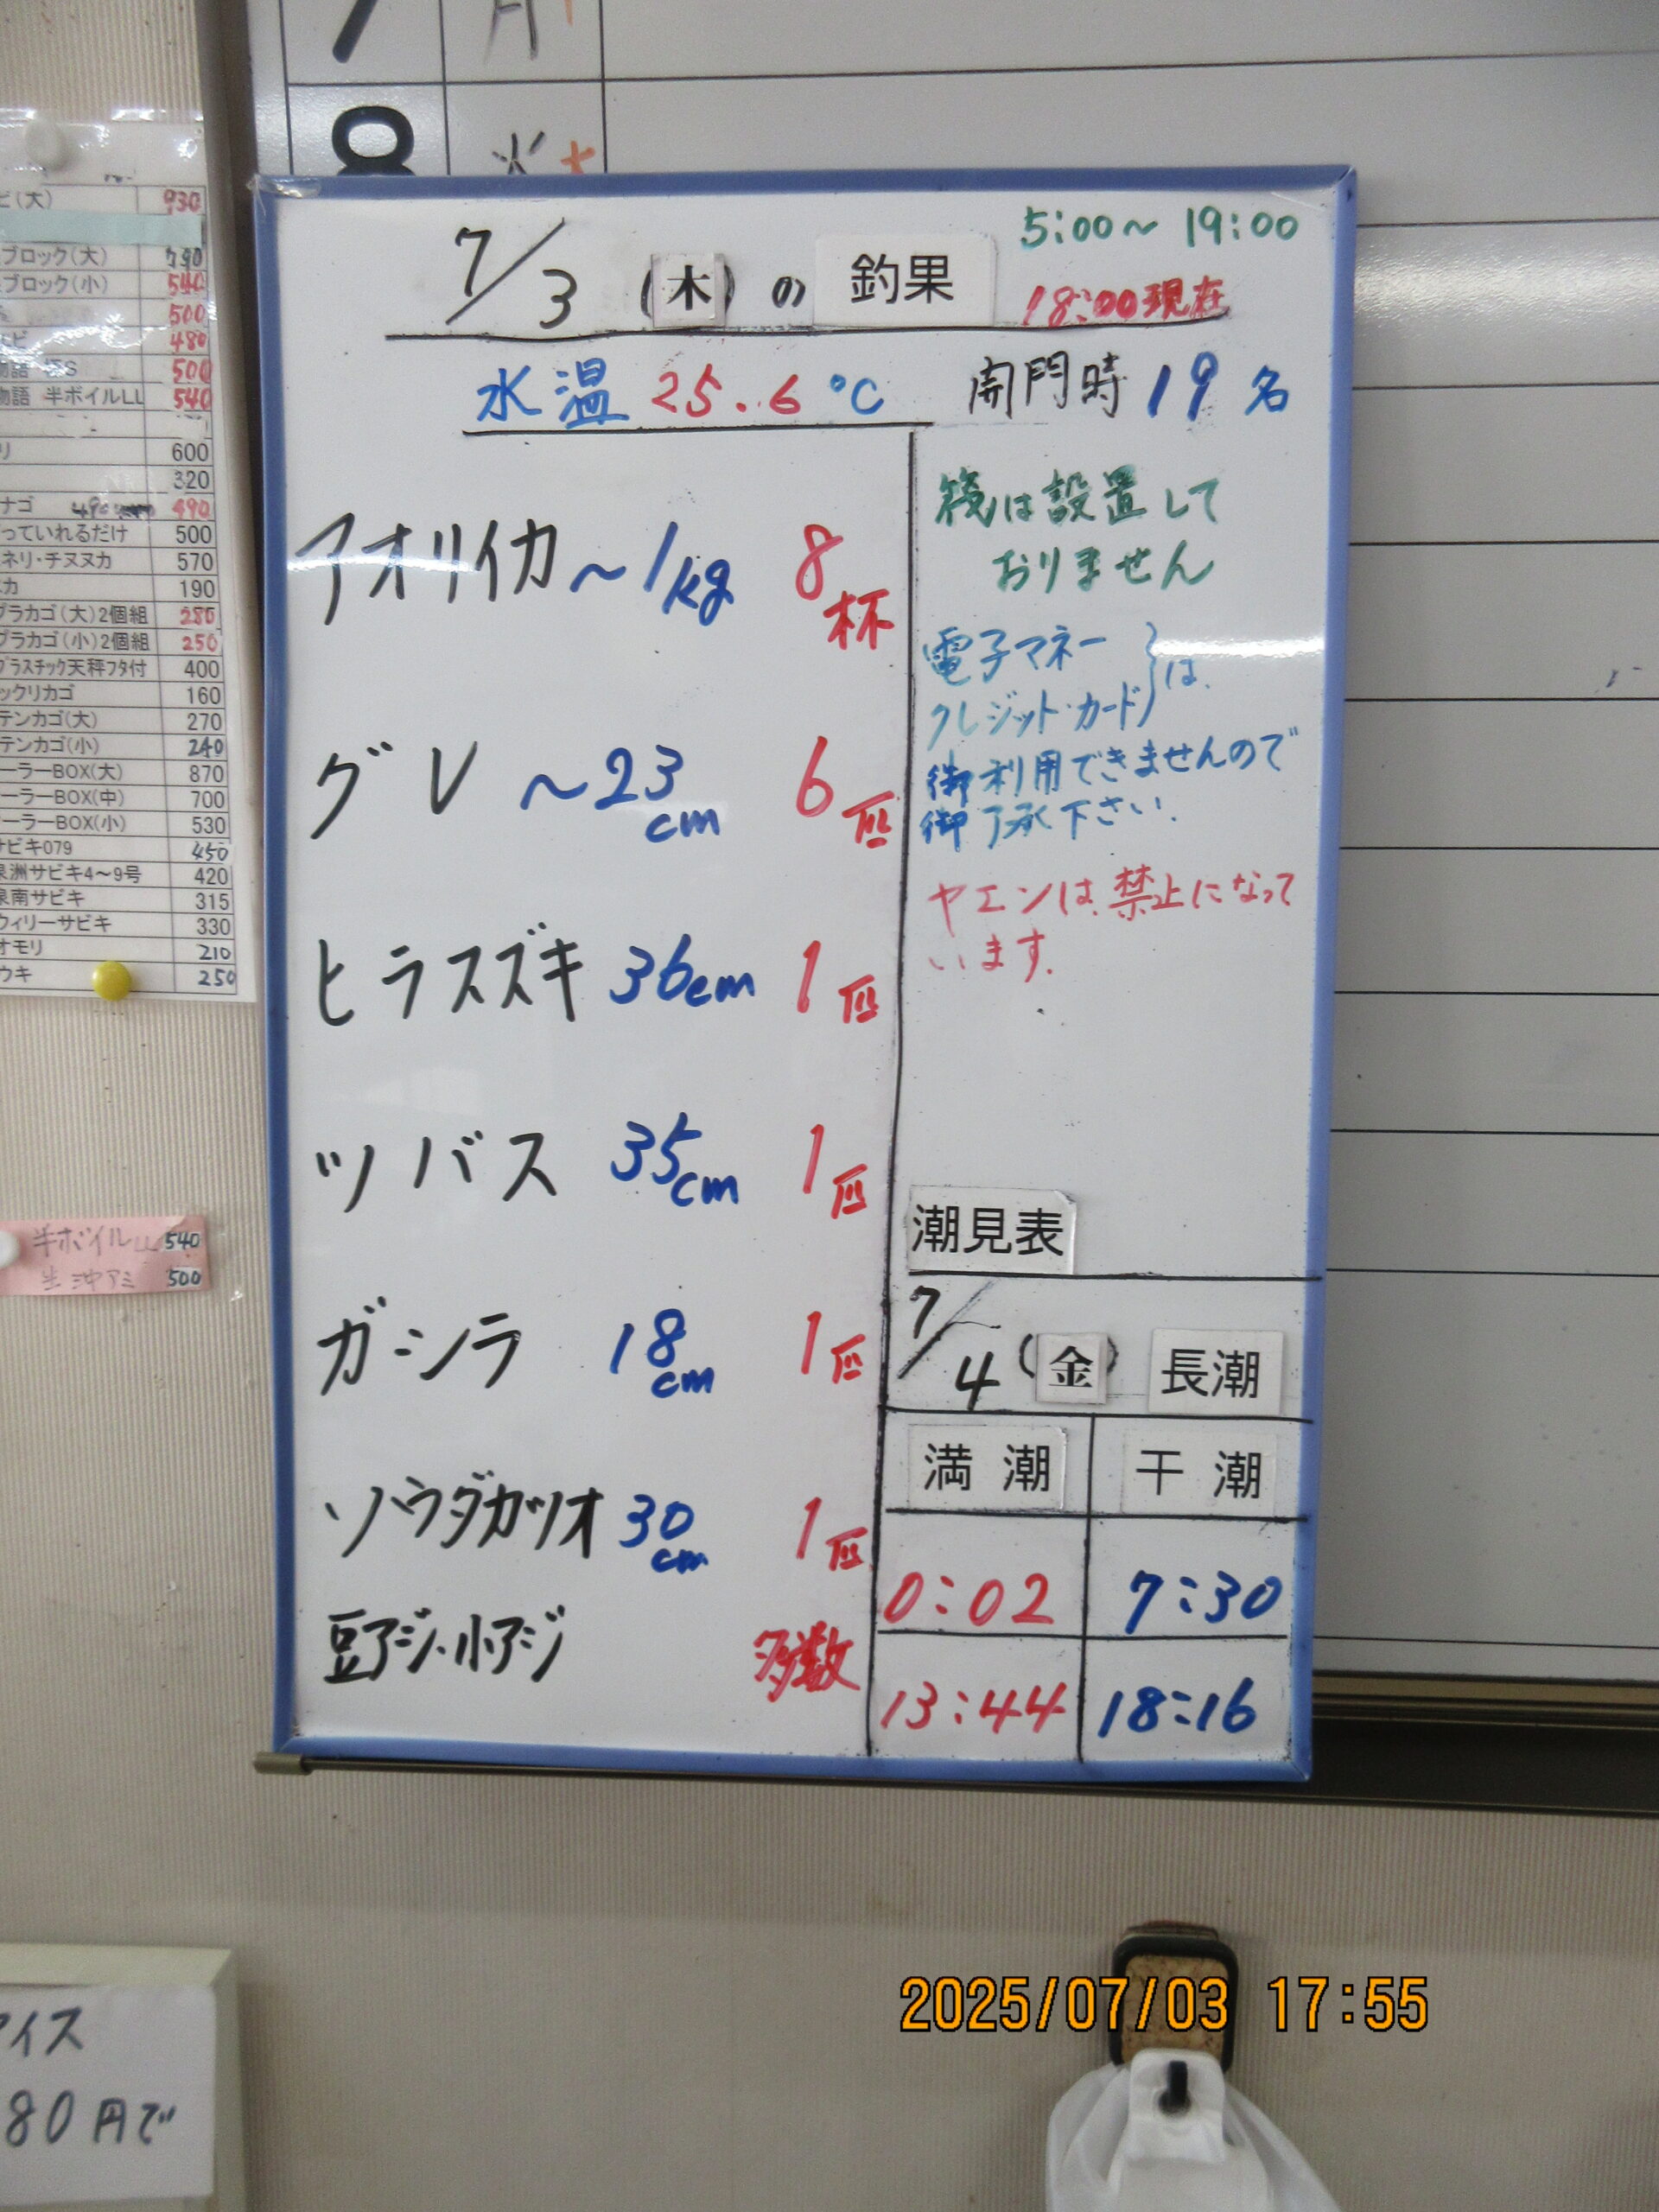 7 月
8 火
ビ(大) 930
ブロック(大) 790
ブロック(小) 540
500
480
500
半ボイルLL 540
リ 600
320
ナゴ 490
っていれるだけ 500
ネリ・チヌヌカ 570
カ 190
プラカゴ(大)2個組 280
プラカゴ(小)2個組 250
プラスチック天秤フタ付 400
ックリカゴ 160
テンカゴ(大) 270
テンカゴ(小) 240
ーラーBOX(大) 870
ーラーBOX(中) 700
ーラーBOX(小) 530
サビキ079 450
泉洲サビキ4〜9号 420
泉南サビキ 315
ウィリーサビキ 330
オモリ 210
ウキ 250
半ボイルLL 540
生 沖アミ 500
アイス
80円で
7/3 (木) の 釣果
5:00〜19:00
18:00現在
水温 25.6℃ 開門時 19名
アオリイカ 〜1kg 8杯
グレ 〜23cm 6匹
ヒラスズキ 36cm 1匹
ツバス 35cm 1匹
ガシラ 18cm 1匹
ソウダガツオ 30cm 1匹
豆アジ・小アジ 多数
筏は設置して
おりません
電子マネー
クレジット・カード }は、
御利用できませんので
御了承下さい.
ヤエンは、禁止になって
います.
潮見表
7/4 (金) 長潮
満潮 干潮
0:02 7:30
13:44 18:16
2025/07/03 17:55